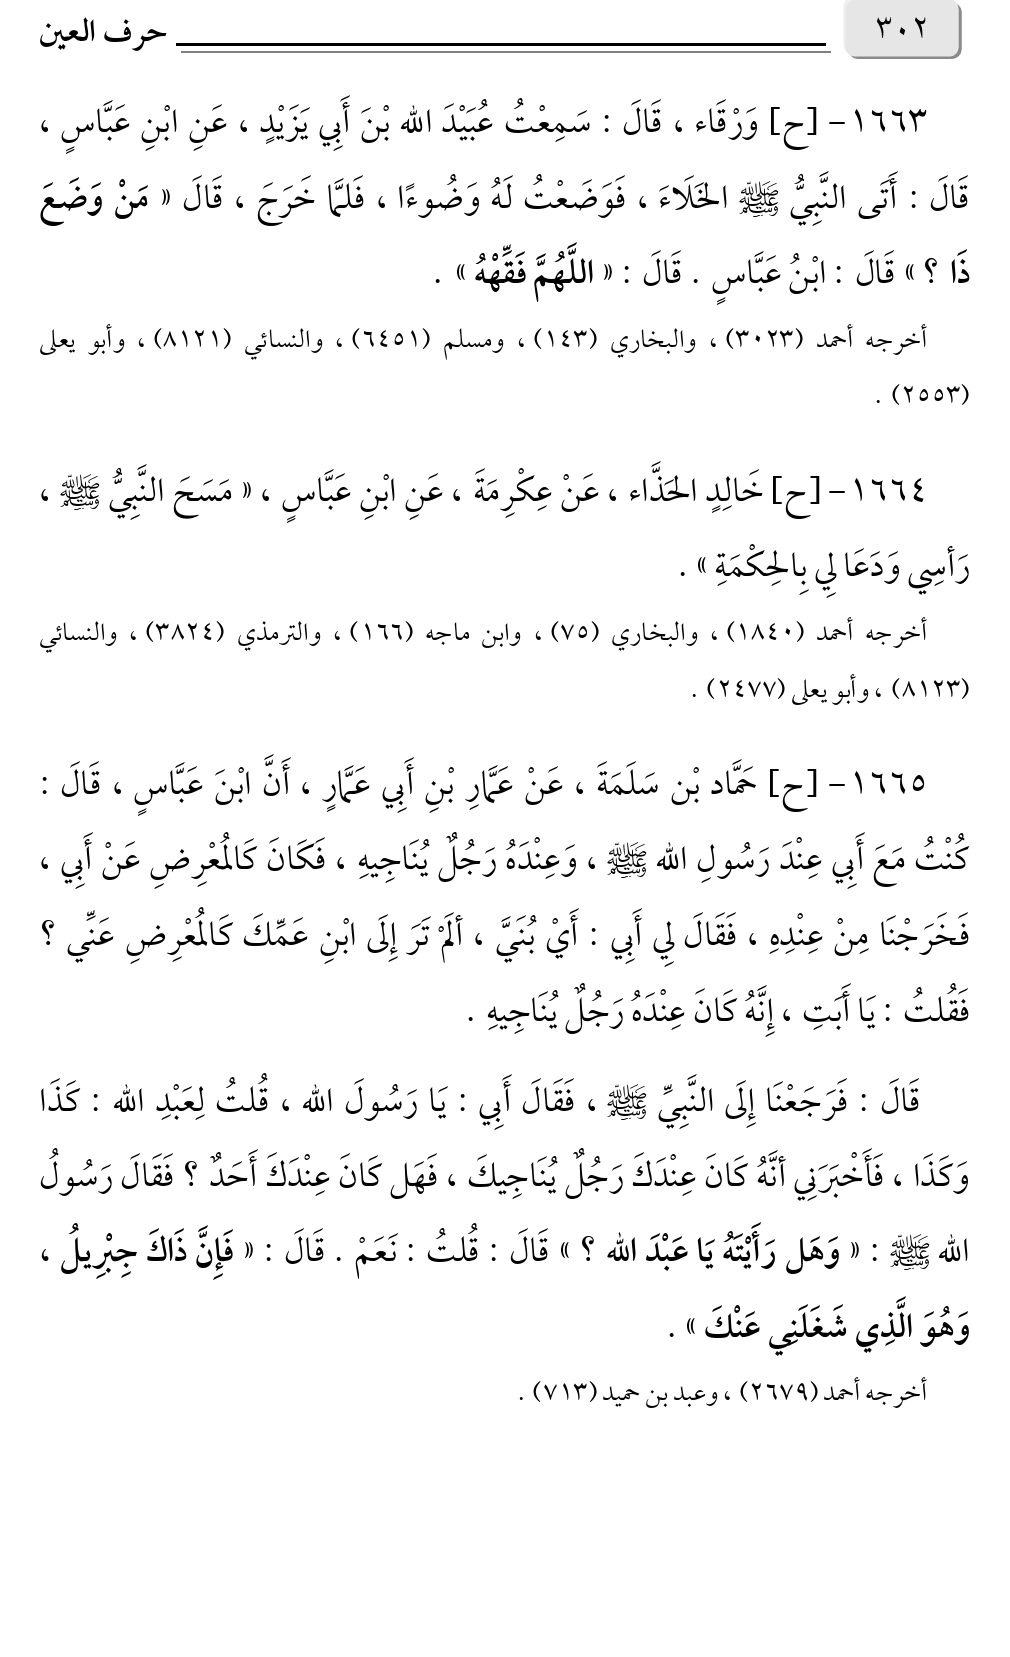 ٣٠٢
حرف العين
١٦٦٣- [ح] وَرْقَاء ، قَالَ : سَمِعْتُ عُبَيْدَ الله بْنَ أَبِي يَزَيْدٍ ، عَنِ ابْنِ عَبَّاسٍ ،
قَالَ : أَتَى النَّبِيُّ ﷺ الخَلَاءَ ، فَوَضَعْتُ لَهُ وَضُوءًا ، فَلمَّا خَرَجَ ، قَالَ « مَنْ وَضَعَ
ذَا ؟ » قَالَ : ابْنُ عَبَّاسٍ . قَالَ : « اللَّهُمَّ فَقِّهْهُ » .
أخرجه أحمد (٣٠٢٣) ، والبخاري (١٤٣) ، ومسلم (٦٤٥١) ، والنسائي (٨١٢١) ، وأبو يعلى
(٢٥٥٣) .
١٦٦٤- [ح] خَالِدٍ الحَذَّاء ، عَنْ عِكْرِمَةَ ، عَنِ ابْنِ عَبَّاسٍ ، « مَسَحَ النَّبِيُّ ﷺ ،
رَأسِي وَدَعَا لِي بِالحِكْمَةِ » .
أخرجه أحمد (١٨٤٠) ، والبخاري (٧٥) ، وابن ماجه (١٦٦) ، والترمذي (٣٨٢٤) ، والنسائي
(٨١٢٣) ، وأبو يعلى (٢٤٧٧) .
١٦٦٥- [ح] حَمَّاد بْن سَلَمَةَ ، عَنْ عَمَّارِ بْنِ أَبِي عَمَّارٍ ، أَنَّ ابْنَ عَبَّاسٍ ، قَالَ :
كُنْتُ مَعَ أَبِي عِنْدَ رَسُولِ الله ﷺ ، وَعِنْدَهُ رَجُلٌ يُنَاجِيهِ ، فَكَانَ كَالمُعْرِضِ عَنْ أَبِي ،
فَخَرَجْنَا مِنْ عِنْدِهِ ، فَقَالَ لِي أَبِي : أَيْ بُنَيَّ ، ألَمْ تَرَ إِلَى ابْنِ عَمِّكَ كَالمُعْرِضِ عَنِّي ؟
فَقُلتُ : يَا أَبَتِ ، إِنَّهُ كَانَ عِنْدَهُ رَجُلٌ يُنَاجِيهِ .
قَالَ : فَرَجَعْنَا إِلَى النَّبِيِّ ﷺ ، فَقَالَ أَبِي : يَا رَسُولَ الله ، قُلتُ لِعَبْدِ الله : كَذَا
وَكَذَا ، فَأَخْبَرَنِي أنَّهُ كَانَ عِنْدَكَ رَجُلٌ يُنَاجِيكَ ، فَهَل كَانَ عِنْدَكَ أَحَدٌ ؟ فَقَالَ رَسُولُ
الله ﷺ : « وَهَل رَأَيْتَهُ يَا عَبْدَ الله ؟ » قَالَ : قُلتُ : نَعَمْ . قَالَ : « فَإِنَّ ذَاكَ جِبْرِيلُ ،
وَهُوَ الَّذِي شَغَلَنِي عَنْكَ » .
أخرجه أحمد (٢٦٧٩) ، وعبد بن حميد (٧١٣) .